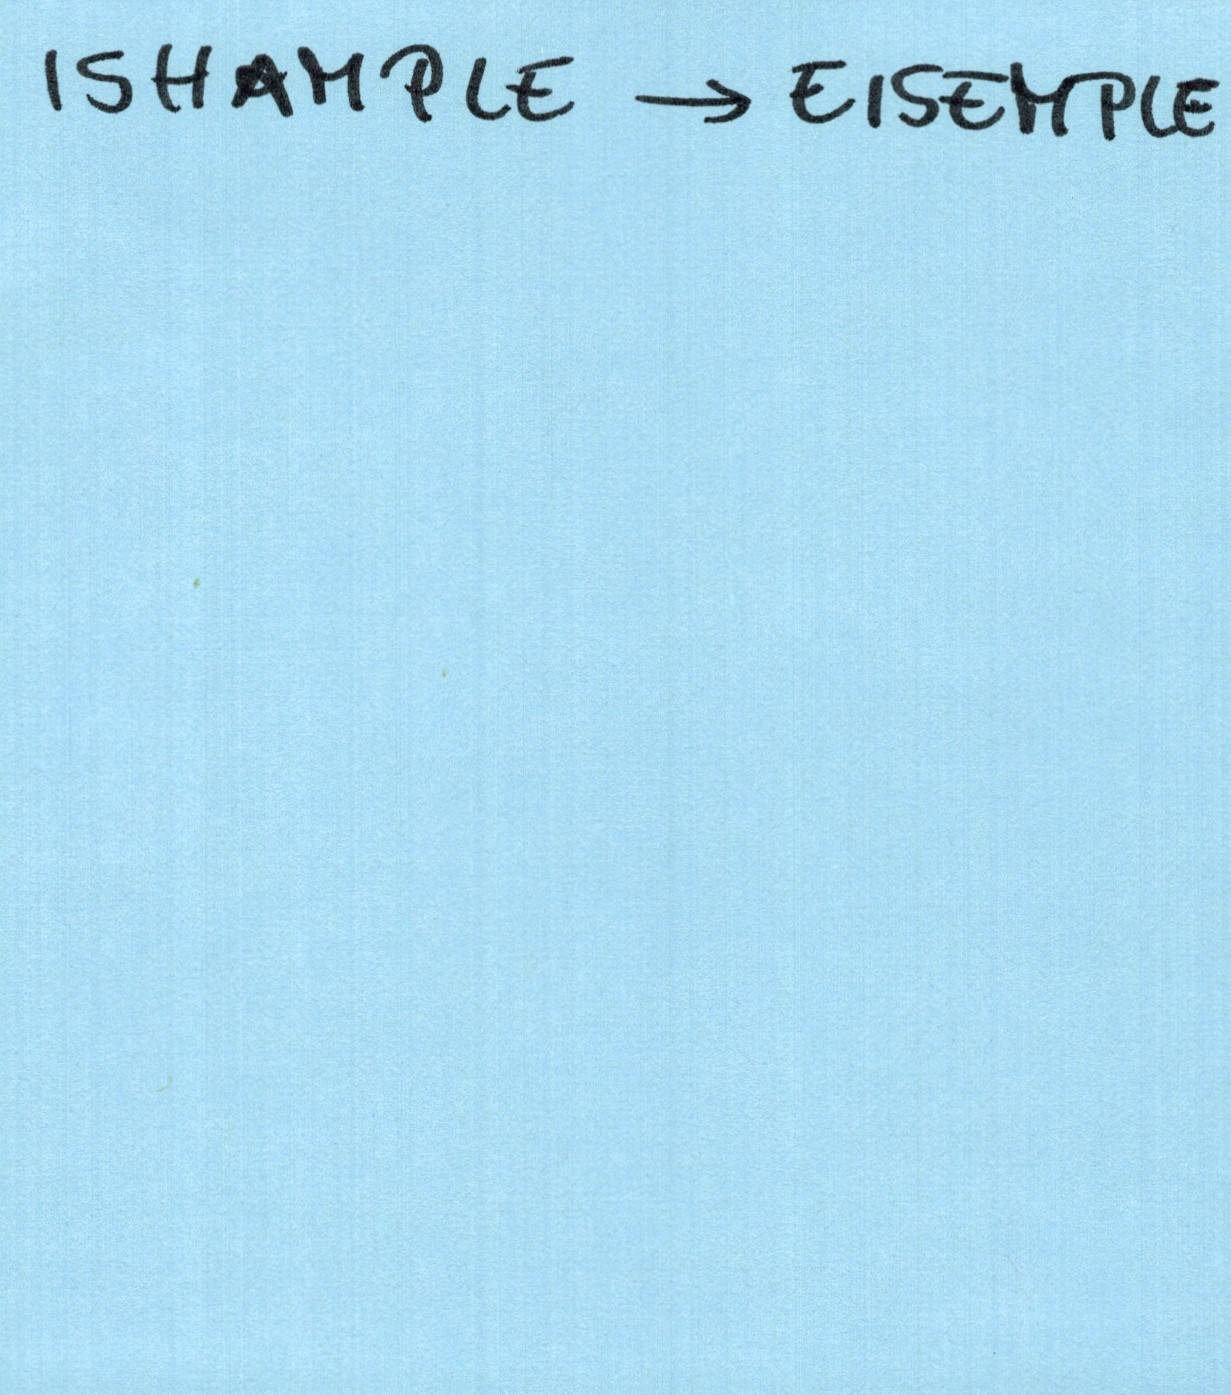 ISHAMPLE → EISEMPLE